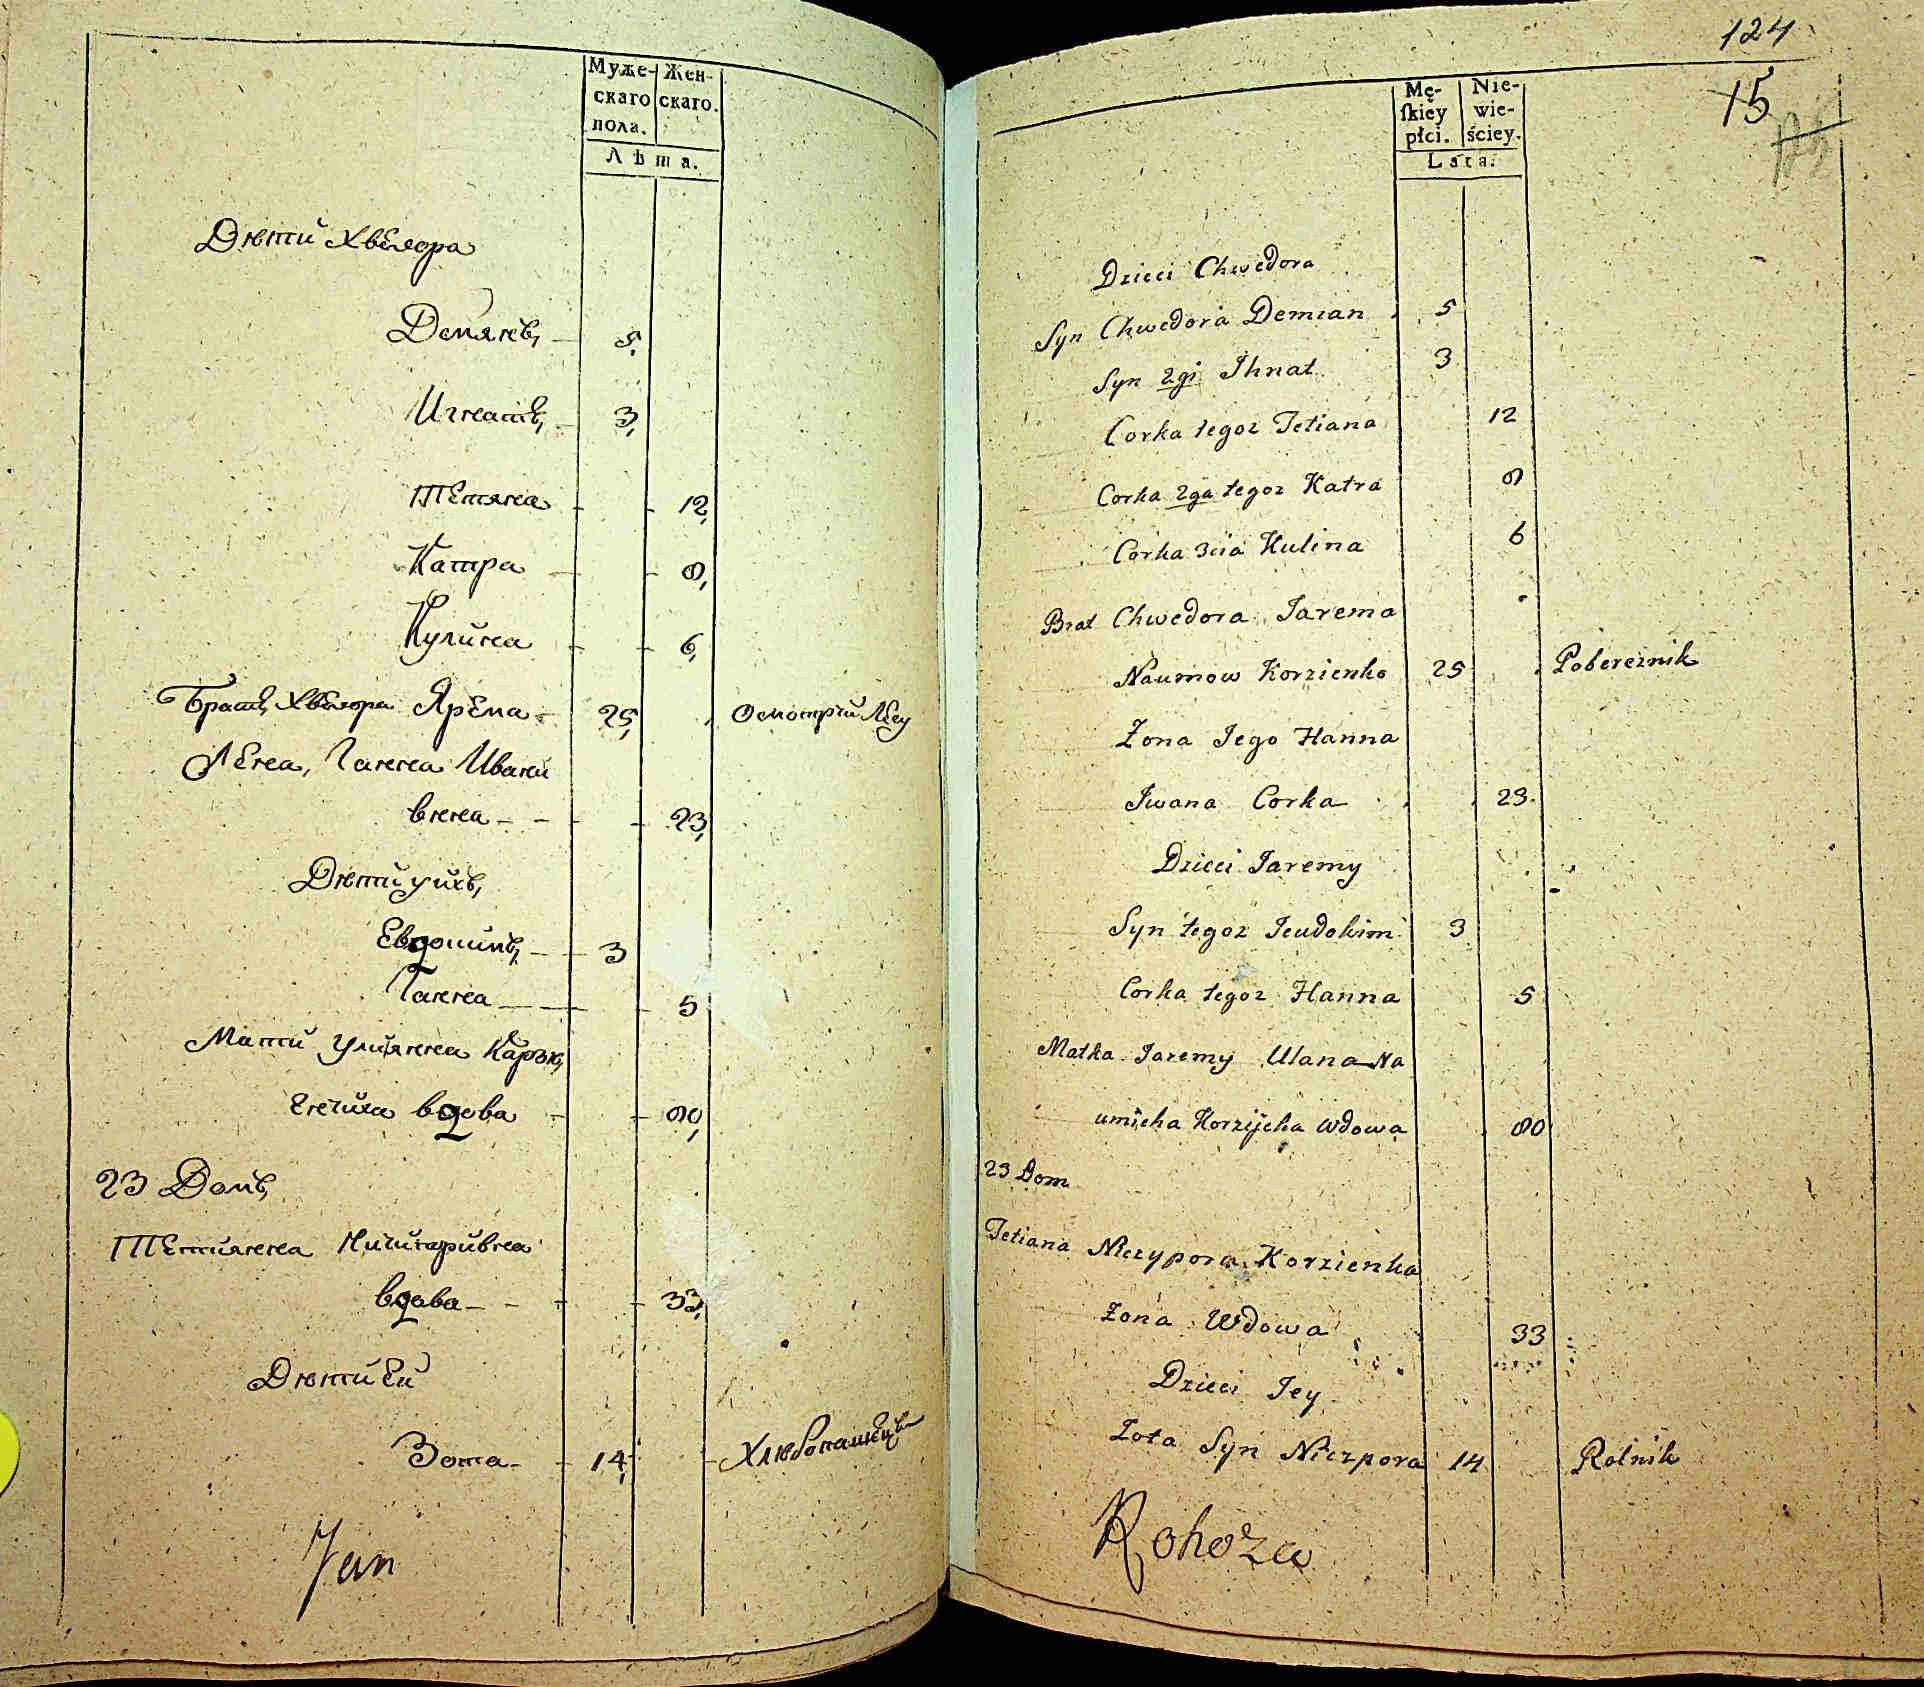 Муже-
скаго
пола.
Жен-
скаго.
Лѣта.
Дѣти Хведора
Демянъ 5
Игнатъ 3
Тетяна 12
Катра 8
Кулина 6
Братъ Хведора Ярема 25
Ганна Ивани
вна 23
Дѣти ихъ
Евдокимъ 3
Ганна 5
Мати Улияна
вдова 80
23 Домъ
Тетияна Ничипоривна
вдова 33
Дѣти Еи
Зота 14 Хлѣбопашецъ
Jan
124
15
Mę-
ſkiey
płci.
Nie-
wie-
ściey.
Lata.
Dzieci Chwedora
Syn Chwedora Demian 5
Syn 2gi Ihnat 3
Corka tegoz Tetiana 12
Corka 2ga tegoz Katra 8
Corka 3cia Kulina 6
Brat Chwedora Jarema
Naumow Korzienko 25 Pobereznik
Zona Jego Hanna
Iwana Corka 23
Dzieci Jaremy
Syn tegoz Jeudokim 3
Corka tegoz Hanna 5
Matka Jaremy Ulana Na
umicha Korzijcha wdowa 80
23 Dom
Tetiana Niczypora Korzienka
Zona Wdowa 33
Dzieci Jey
Zota Syn Niczpora 14 Rolnik
Rohoza